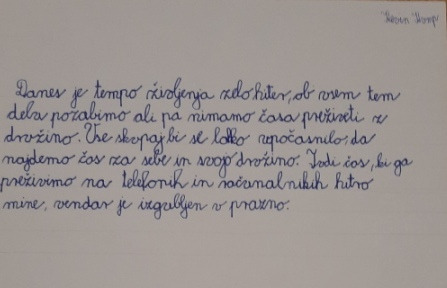 Danes je tempo življenja zelo hiter, ob vsem tem
delu pozabimo ali pa nimamo časa preživeti z
družino. Vse skupaj bi se lahko upočasnilo, da
najdemo čas za sebe in svojo družino. Tudi čas, ki ga
preživimo na telefonih in računalnikih hitro
mine, vendar je izgubljen v prazno.